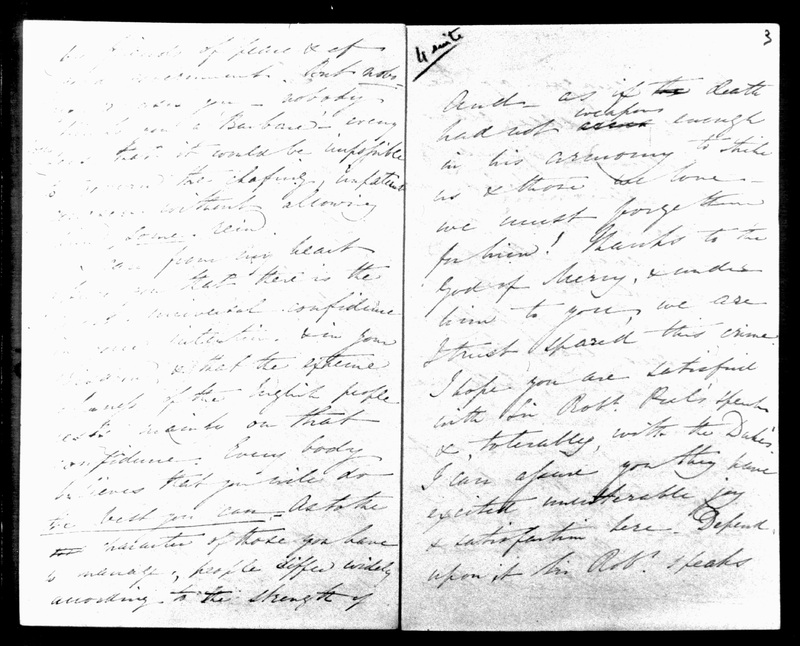 of peace & of
but nobo-
you - nobody
you a Barbare - every
that it would be impossible
to govern the chafing, impatient
without allowing
some rein.
I can from my heart
you that there is the
most universal confidence
in your intention & in your
& that the extreme
of the English people
rests mainly on that
confidence. Every body
believes that you will do
the best you can. As to the
character of those you have
to manage, people differ widely
according to the strength of
4 suite
3
And - as if the death
had not arms weapons enough
in his armoury to strike
us & those we love -
we must forge them
for him! Thanks to the
God of Mercy, & under
him to you, we are
I trust spared this crime.
I hope you are satisfied
with Sir Robt. Peel's speech
&, tolerably, with the Duke's.
I can assure you they have
excited unutterable joy
& satisfaction here. Depend
upon it Sir Robt. speaks